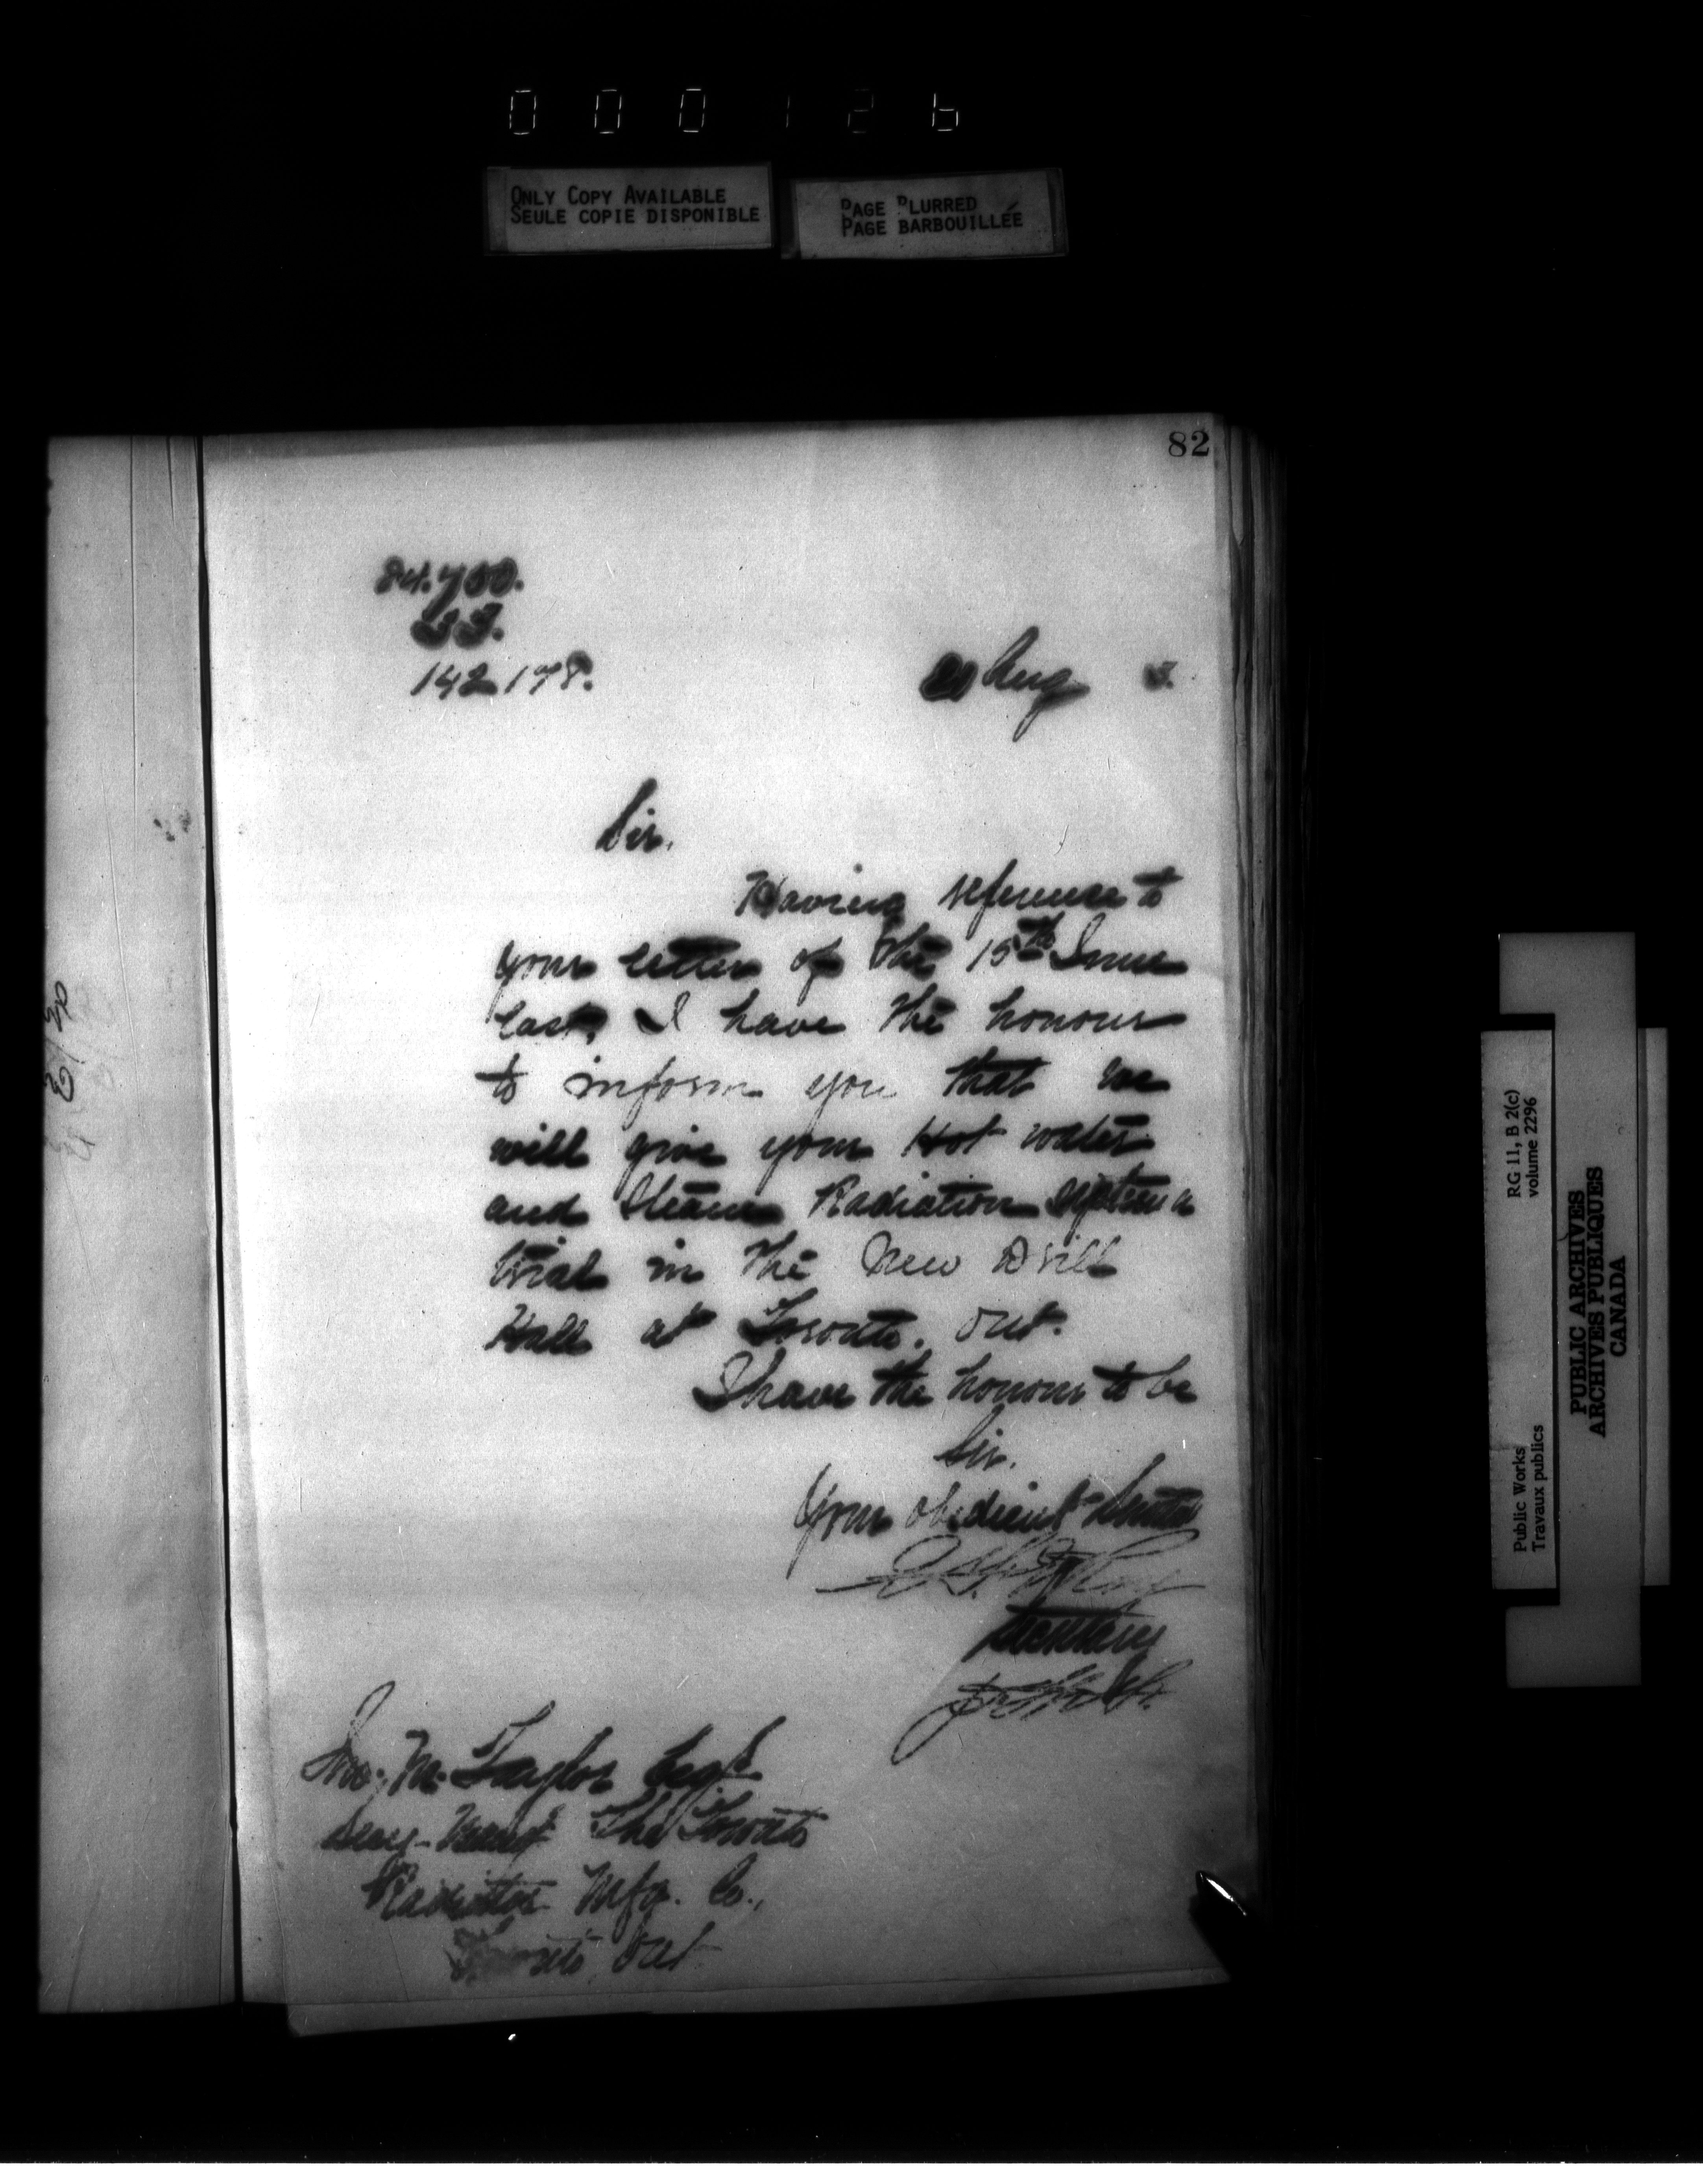 0 0 0 1 2 6
ONLY COPY AVAILABLE
SEULE COPIE DISPONIBLE
PAGE BLURRED
PAGE BARBOUILLÉE
82
84.700.
142178.
20 Aug 3.
Sir,
Having reference to
your letter of the 15th June
last, I have the honour
to inform you that we
will give your Hot water
and Steam Radiation System a
trial in the New Drill
Hall at Toronto, Ont.
I have the honour to be
Sir,
Your obedient Servant
Secretary
Jno. M. Taylor Esqr.
Secy-Treas. The Toronto
Radiator Mfg. Co.,
Toronto, Ont
RG 11, B 2(c)
volume 2296
Public Works
Travaux publics
PUBLIC ARCHIVES
ARCHIVES PUBLIQUES
CANADA